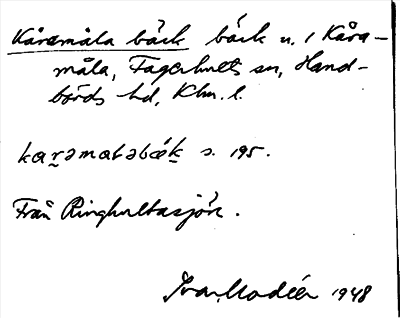 Kåramåla bäck bäck n. i Kåra-
måla, Fagerhults sn, Hand-
börds hd, Klm. l.
karəmalabæk s. 195.
Från Ringhultasjön.
Ivar Modéer 1948